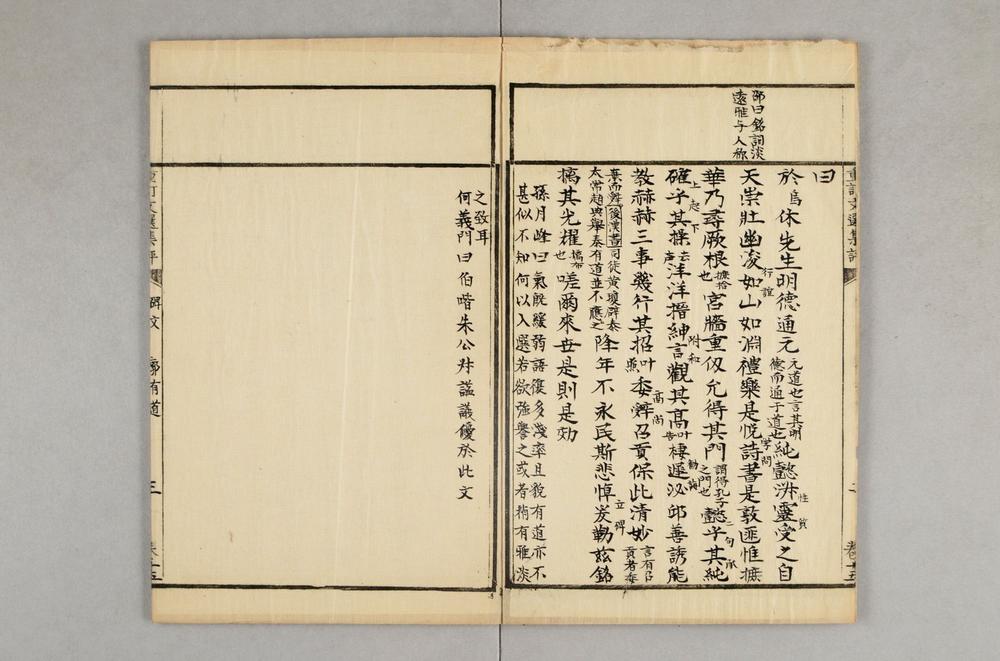 邵曰銘詞淡
遠雅与人称
曰
於烏休先生明德通元元道也言其明德而通于道也純懿淑靈受之自
天崇壯幽浚如山如淵禮樂是悅詩書是敦匪惟摭
華乃尋厥根摭拾也宮牆重仭允得其門謂得孔子之門也懿乎其純
確乎其操去聲洋洋搢紳言觀其高叶告棲遲泌邱善誘能
教赫赫三事幾行其招叶照委辭召貢保此清妙言有召貢者委
棄而辭後漢書司徒黃瓊辟泰太常趙典舉泰有道並不應之降年不永民斯悲悼爰勒茲銘
摛其光耀摛布也嗟爾來世是則是効
孫月峰曰氣旣緩弱語復多淺率且貌有道亦不
甚似不知何以入選若欲強譽之或者稍有雅淡
之致耳
何義門曰伯喈朱公叔謚議優於此文
行誼
性質
學問
二句承
上起下
附和
勸誨
高尚
立碑
重訂文選集評
碑文
郭有道
三
卷十三